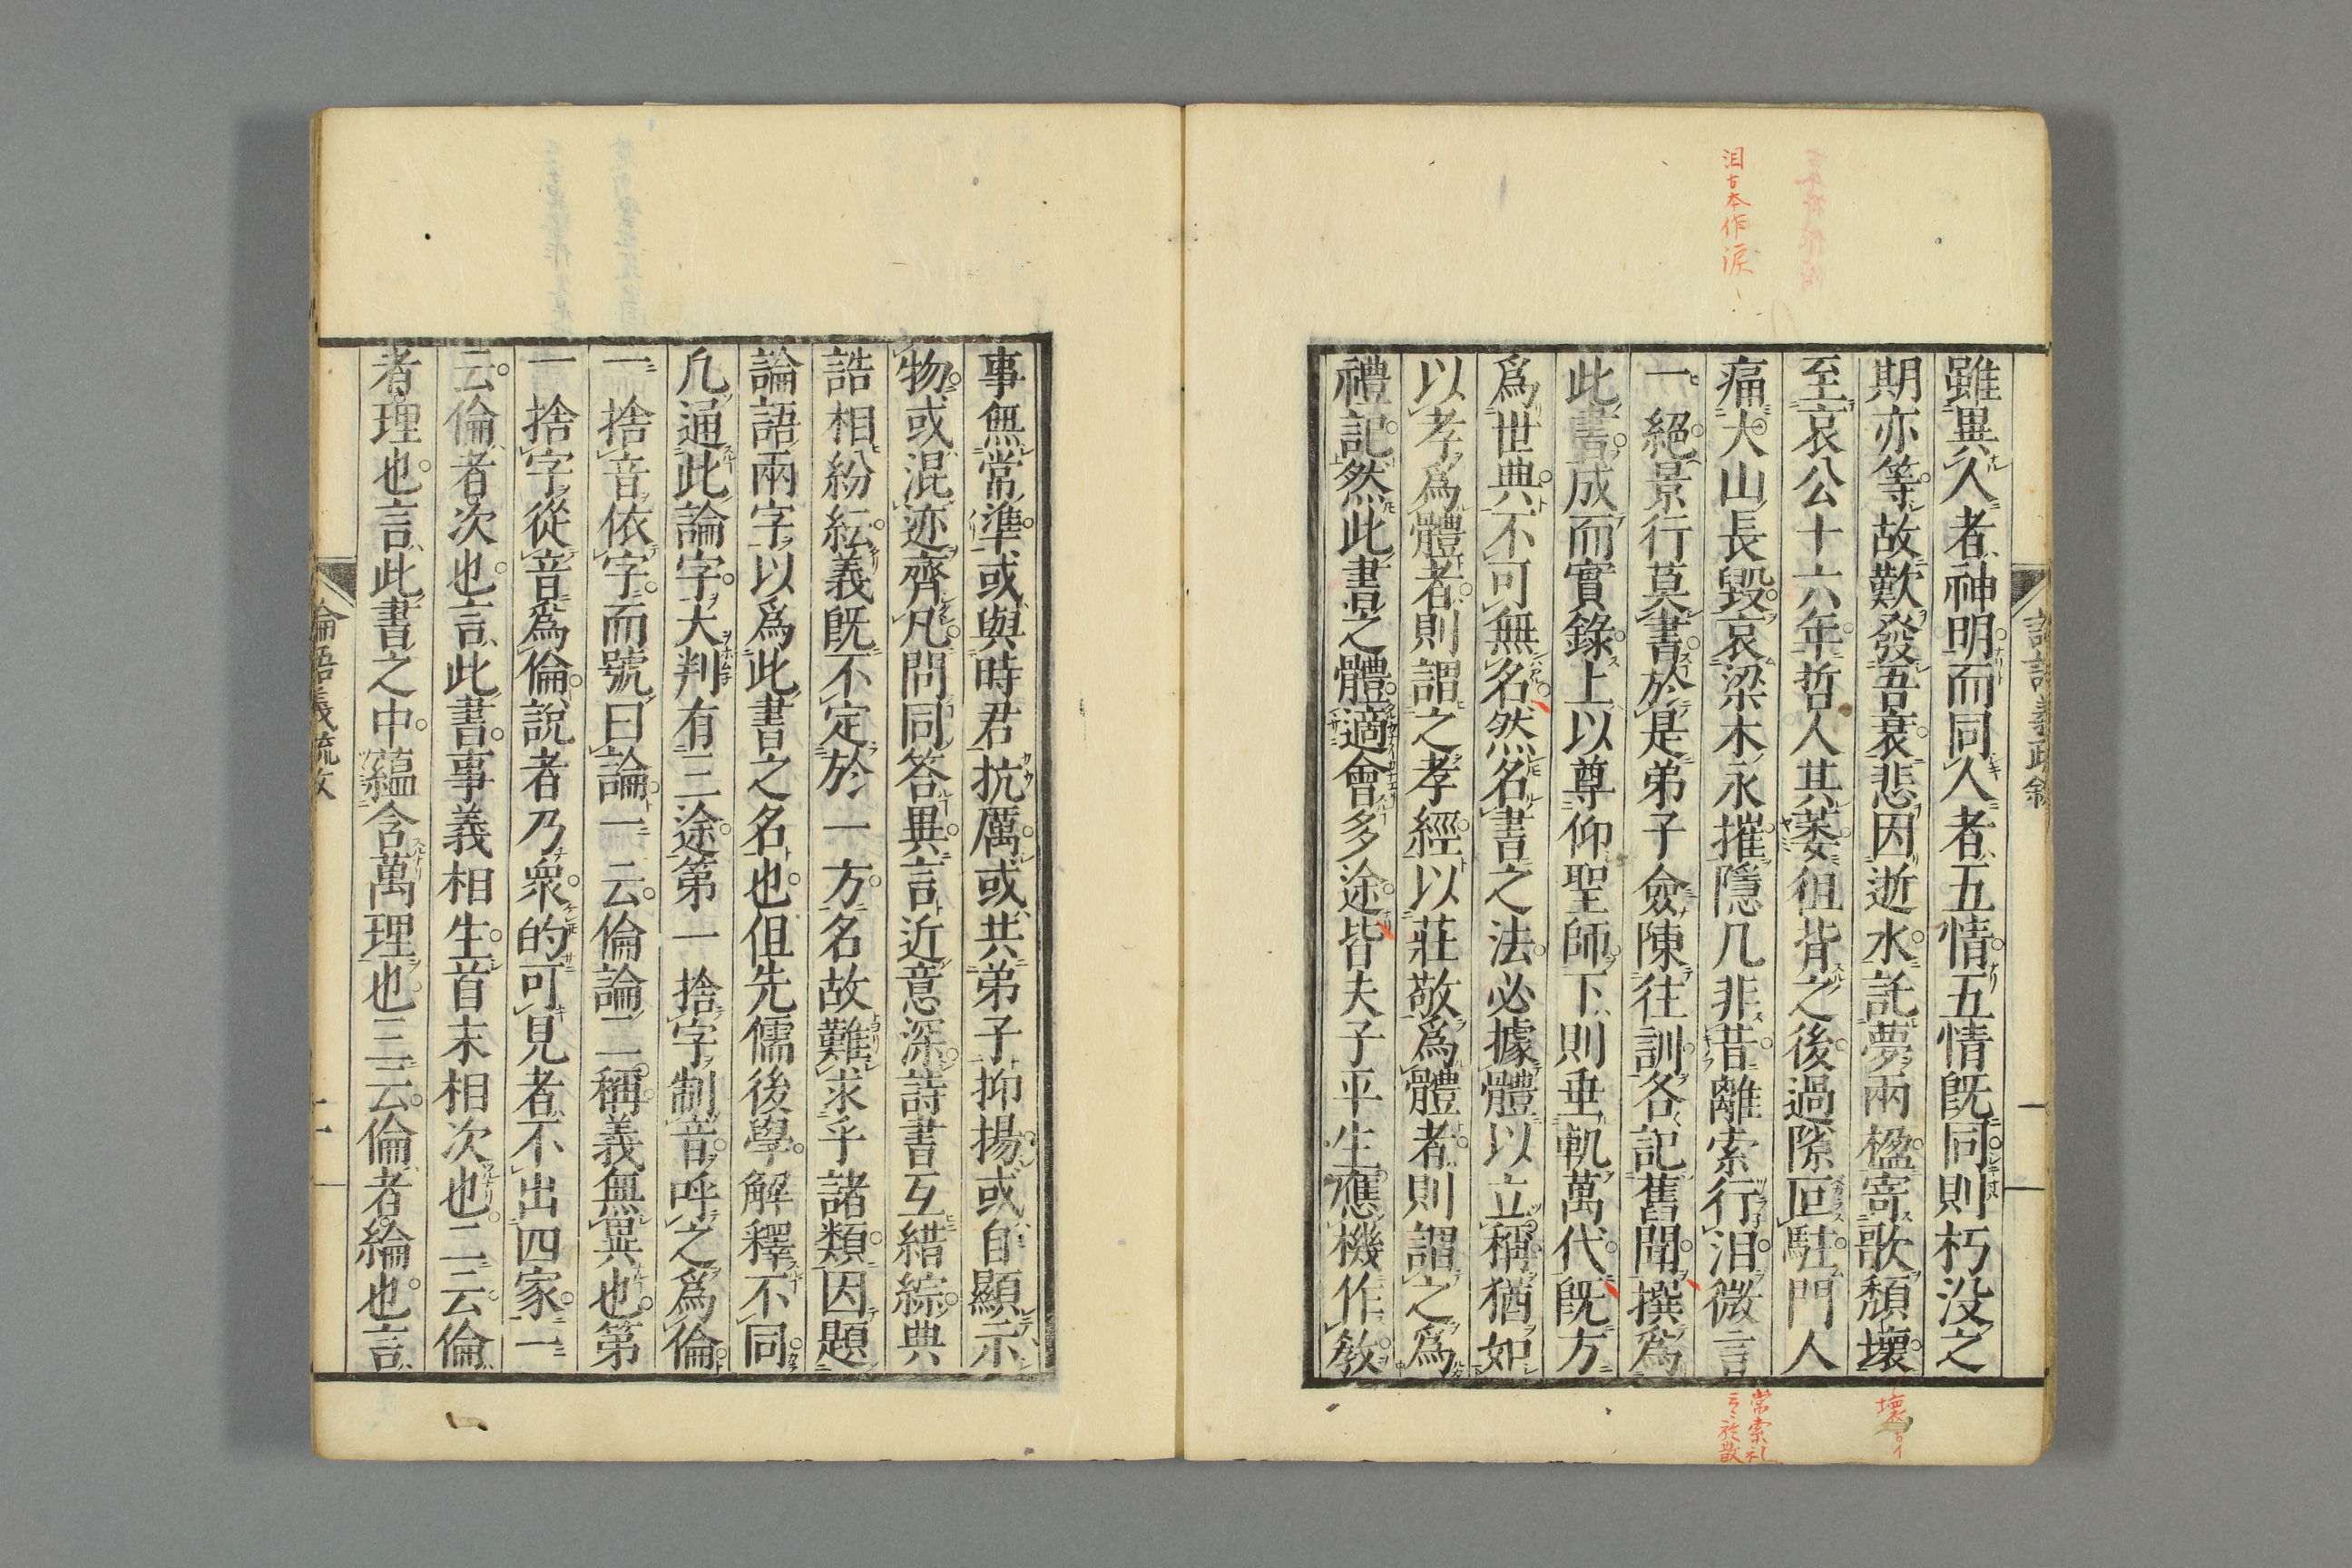 泪古本作淚
雖異人者神明而同人者五情五情既同則朽没之
期亦等故歎發吾衰悲因逝水託夢兩楹寄歌頹壞
至哀公十六年哲人其萎徂背之後過隙叵駐門人
痛大山長毀哀梁木永摧隱几非昔離索行泪微言
一絕景行莫書於是弟子僉陳往訓各記舊聞撰爲
此書成而實錄上以尊仰聖師下則垂軌萬代既方
爲世典不可無名然名書之法必據體以立稱猶如
以孝爲體者則謂之孝經以莊敬爲體者則謂之爲
禮記然此書之體適會多途皆夫子平生應機作教
事無常準或與時君抗厲或共弟子抑揚或自顯示
物或混迹齊凡問同答異言近意深詩書互錯綜典
誥相紛紜義既不定於一方名故難求乎諸類因題
論語兩字以爲此書之名也但先儒後學解釋不同
凡通此論字大判有三途第一捨字制音呼之爲倫
一捨音依字而號曰論一云倫論二稱義無異也第
一捨字從音爲倫說者乃衆的可見者不出四家一
云倫者次也言此書事義相生首末相次也二云倫
者理也言此書之中蘊含萬理也三云倫者綸也言
論語義疏敘
二